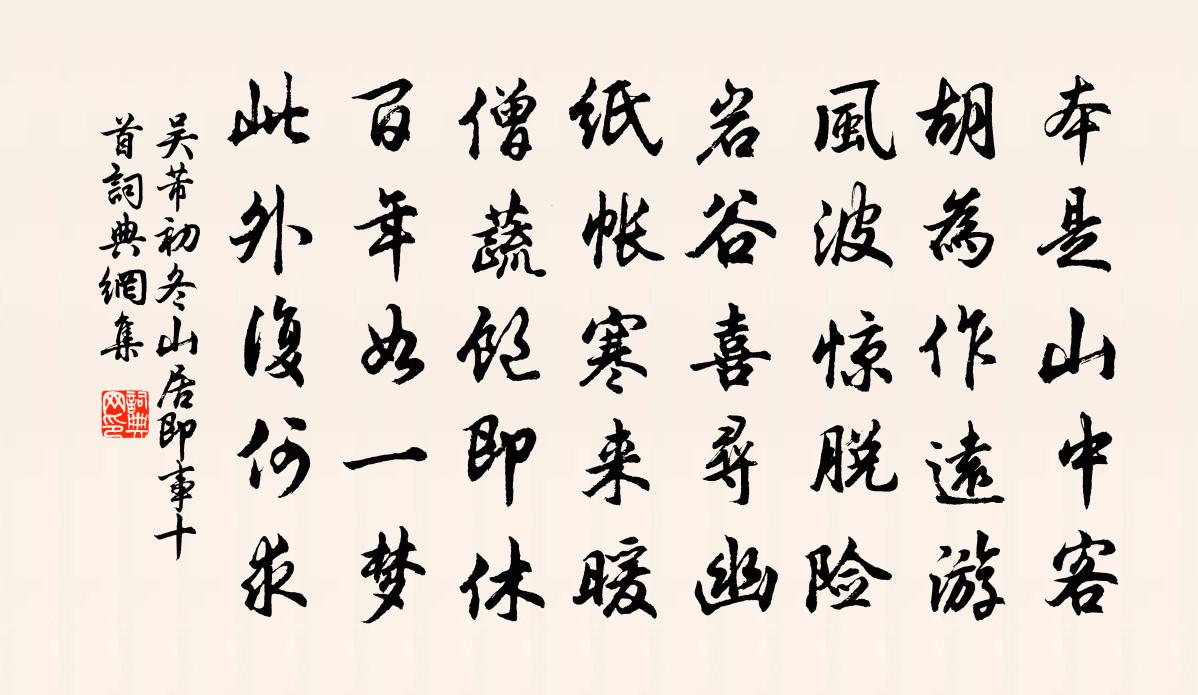 本是山中客
胡為作遠游
風波惊脱险
岩谷喜尋幽
紙帳寒来暖
僧蔬飽即休
百年如一梦
此外復何求
吴芾初冬山居即事十
首詞典網集
詞典
网印